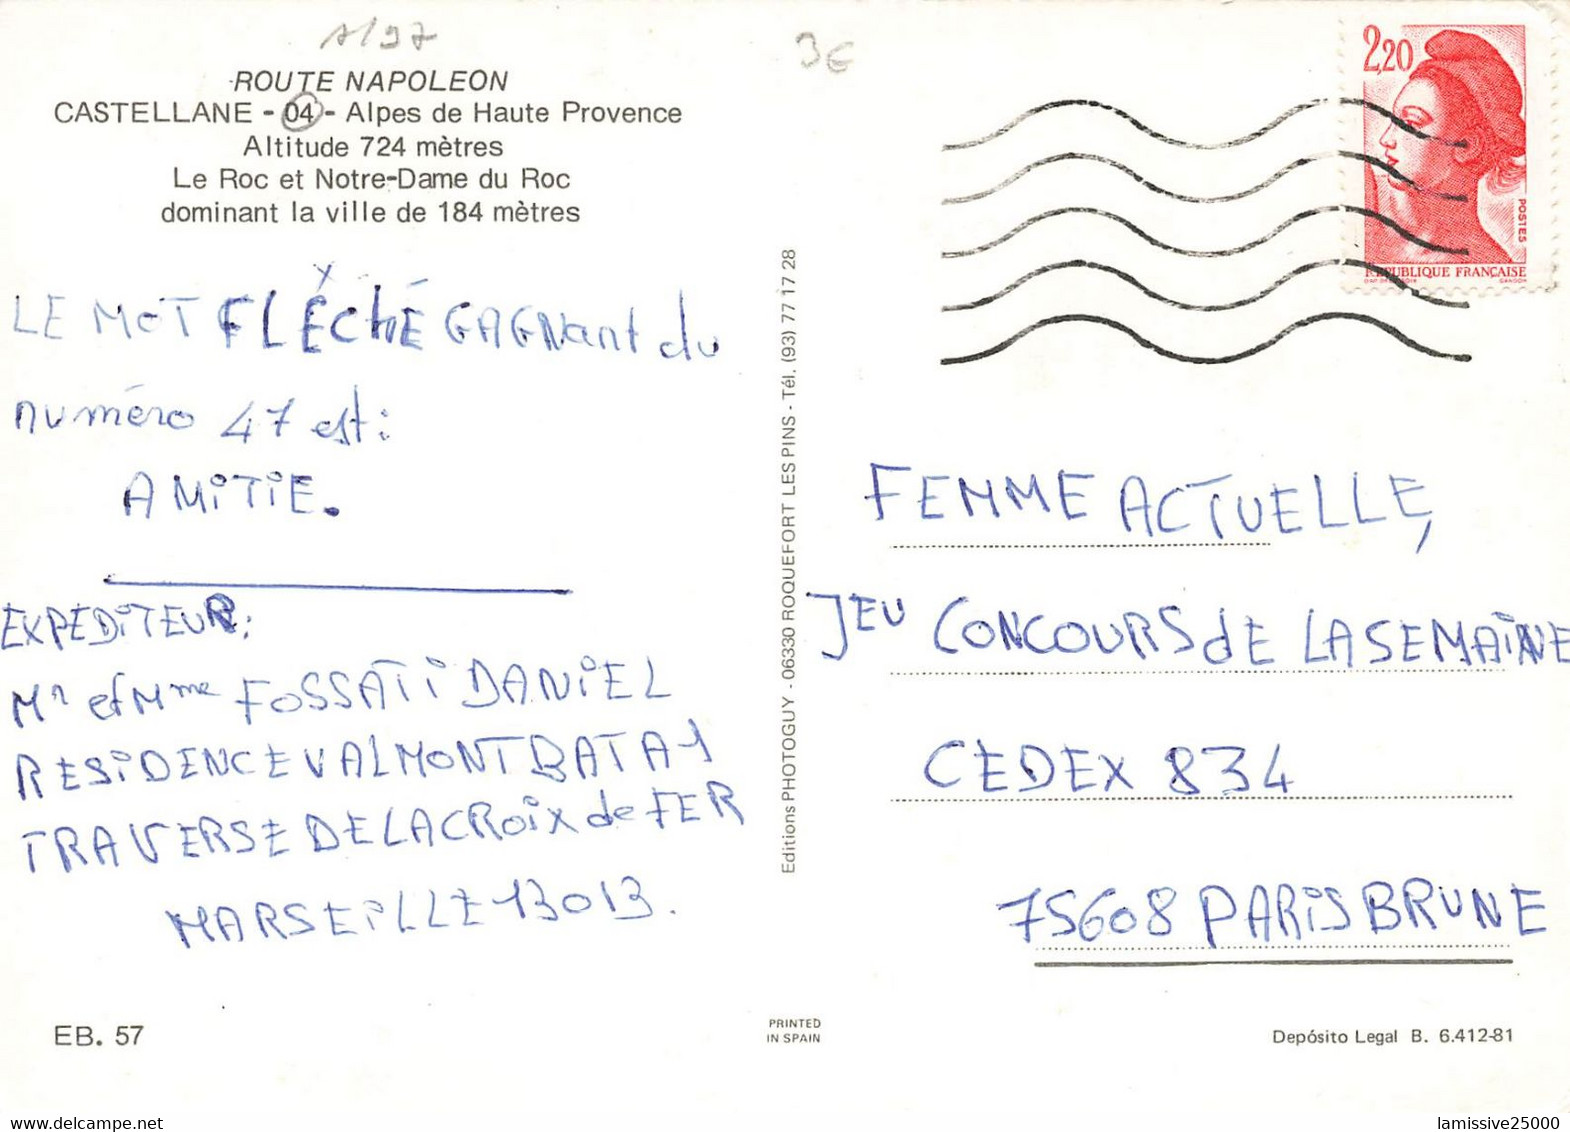 1/97
3€
ROUTE NAPOLEON
CASTELLANE - 04 - Alpes de Haute Provence
Altitude 724 mètres
Le Roc et Notre-Dame du Roc
dominant la ville de 184 mètres
LE MOT FLÉCHÉ GAGNant du
numéro 47 est:
AMiTiE.
EXPEDiTEUR:
Mr et Mme FOSSATi DANiEL
RESiDENCE VALMONT BAT A-1
TRAVERSE DE LA CROiX de FER
MARSEiLLE 13013.
Editions PHOTOGUY - 06330 ROQUEFORT LES PINS - Tél. (93) 77 17 28
2,20
POSTES
REPUBLIQUE FRANÇAISE
GANDON
FEMME ACTUELLE,
JEU CONCOURS dE LA SEMAiNE
CEDEX 834
75608 PARiS BRUNE
EB. 57
PRINTED
IN SPAIN
Depósito Legal B. 6.412-81
lamissive25000